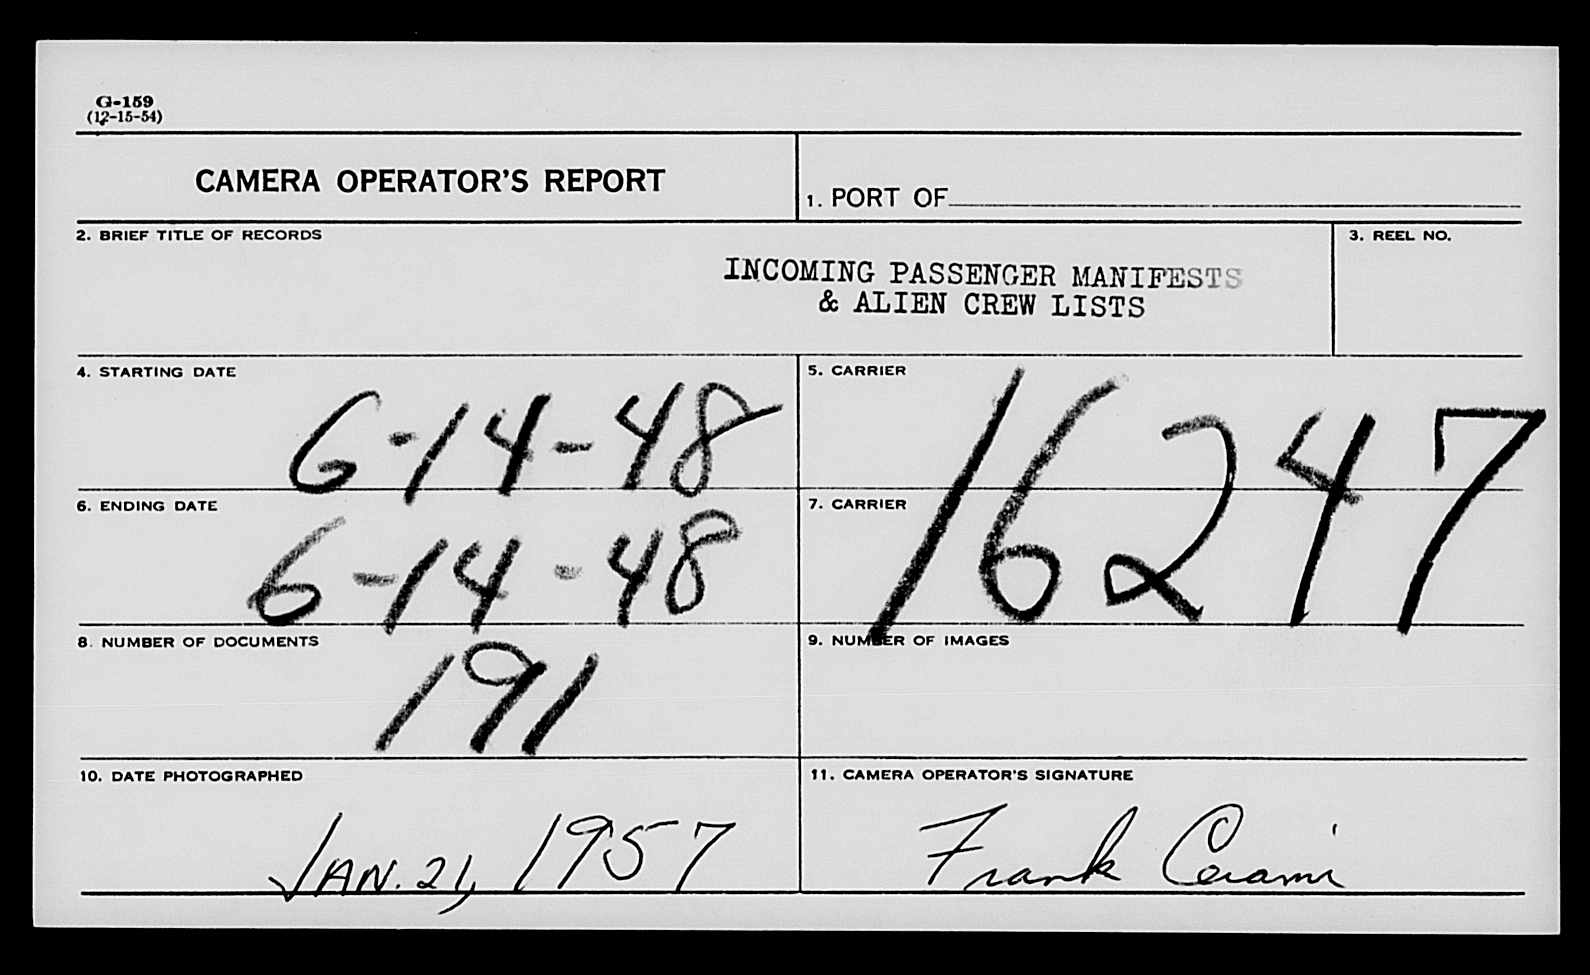 G-159
(12-15-54)
CAMERA OPERATOR'S REPORT
1. PORT OF
2. BRIEF TITLE OF RECORDS
3. REEL NO.
INCOMING PASSENGER MANIFESTS
& ALIEN CREW LISTS
4. STARTING DATE
6-14-48
5. CARRIER
16247
6. ENDING DATE
6-14-48
7. CARRIER
8. NUMBER OF DOCUMENTS
191
9. NUMBER OF IMAGES
10. DATE PHOTOGRAPHED
JAN. 21, 1957
11. CAMERA OPERATOR'S SIGNATURE
Frank Cerami